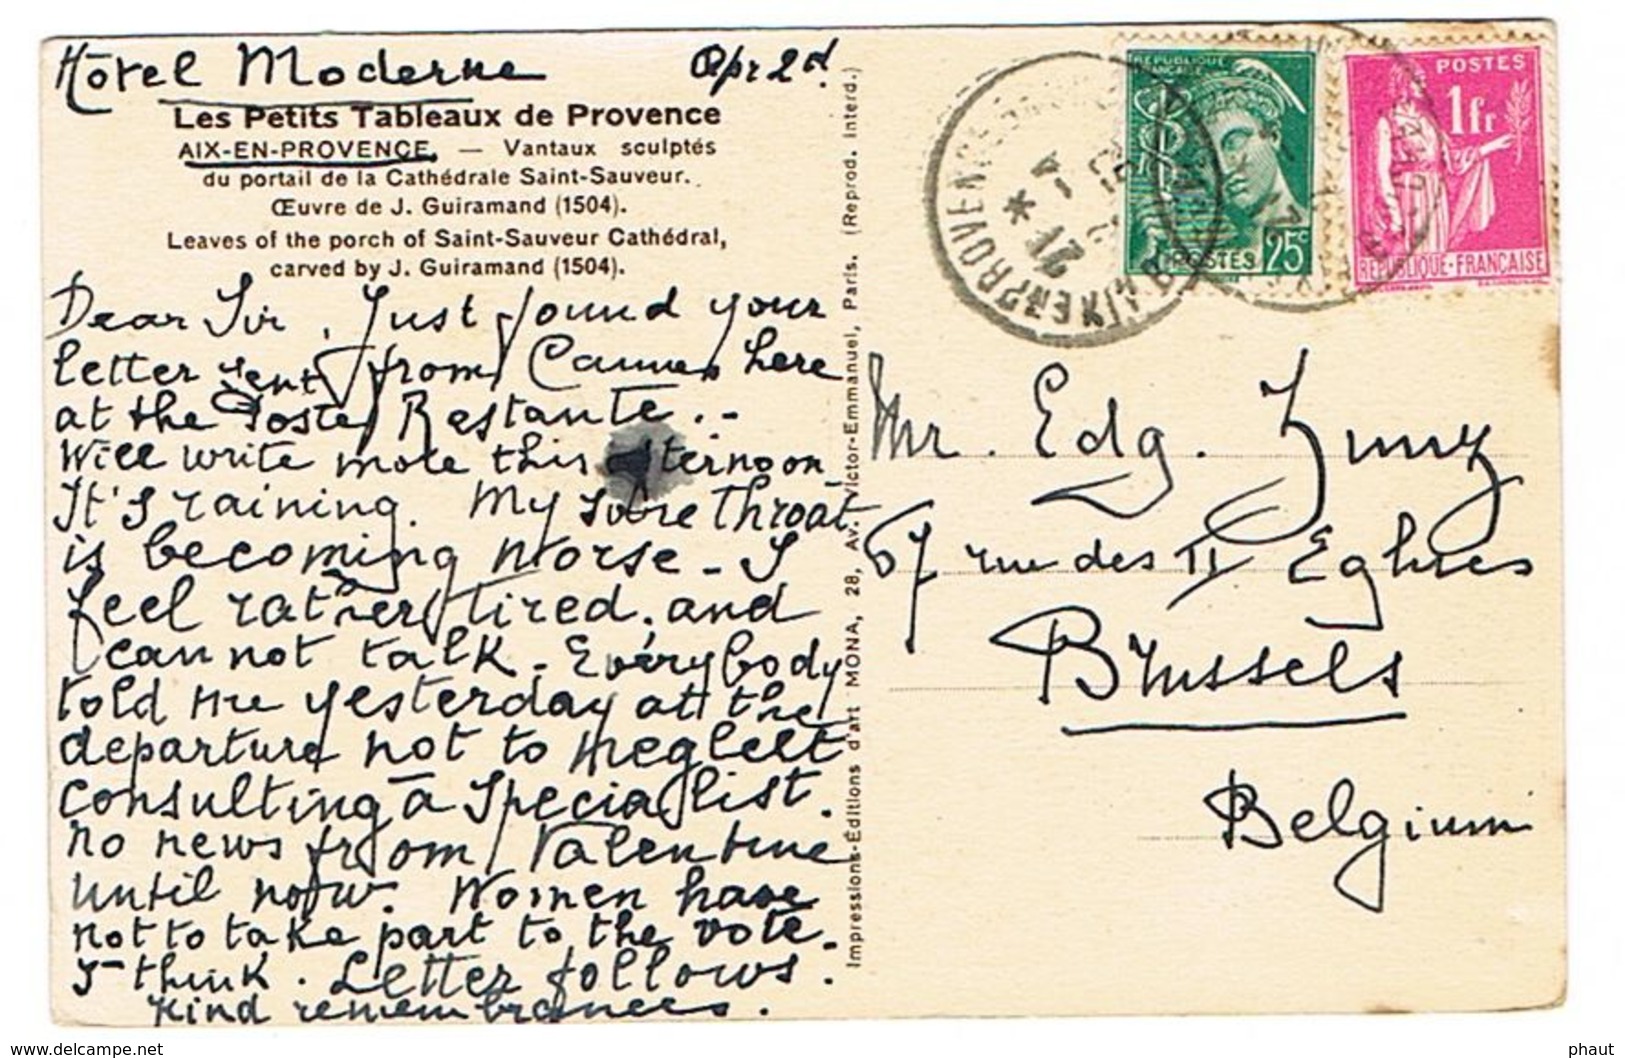 Hôtel Moderne Apr 2d
Les Petits Tableaux de Provence
AIX-EN-PROVENCE. — Vantaux sculptés
du portail de la Cathédrale Saint-Sauveur.
Œuvre de J. Guiramand (1504).
Leaves of the porch of Saint-Sauveur Cathédral,
carved by J. Guiramand (1504).
Dear Sir, Just found your
letter sent from Cannes here
at the Poste Restante. -
Will write more this afternoon
It's raining. My sore throat
is becoming worse - I
feel rather tired. and
I cannot talk. Everybody
told me yesterday at the
departure not to neglect
consulting a specialist.
No news from Valentine
until now. Women have
not to take part to the vote.
I think. Letter follows.
Kind remembrances.
Impressions-Éditions d'art MONA, 28, Av. Victor-Emmanuel, Paris. (Reprod. interd.)
RÉPUBLIQUE
FRANÇAISE
POSTES 25c
POSTES
1fr
RÉPUBLIQUE-FRANÇAISE
AIX EN PROVENCE
21 *
Mr. Edg.
67 rue des II Eglises
Brussels
Belgium
phaut
delcampe.net